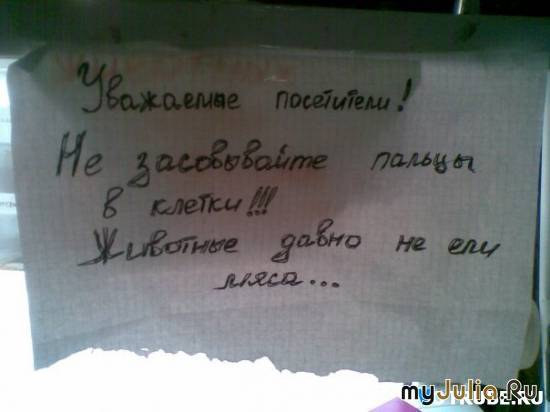 Уважаемые посетители!
Не засовывайте пальцы
в клетки!!!
Животные давно не ели
мяса...
myJulia.Ru